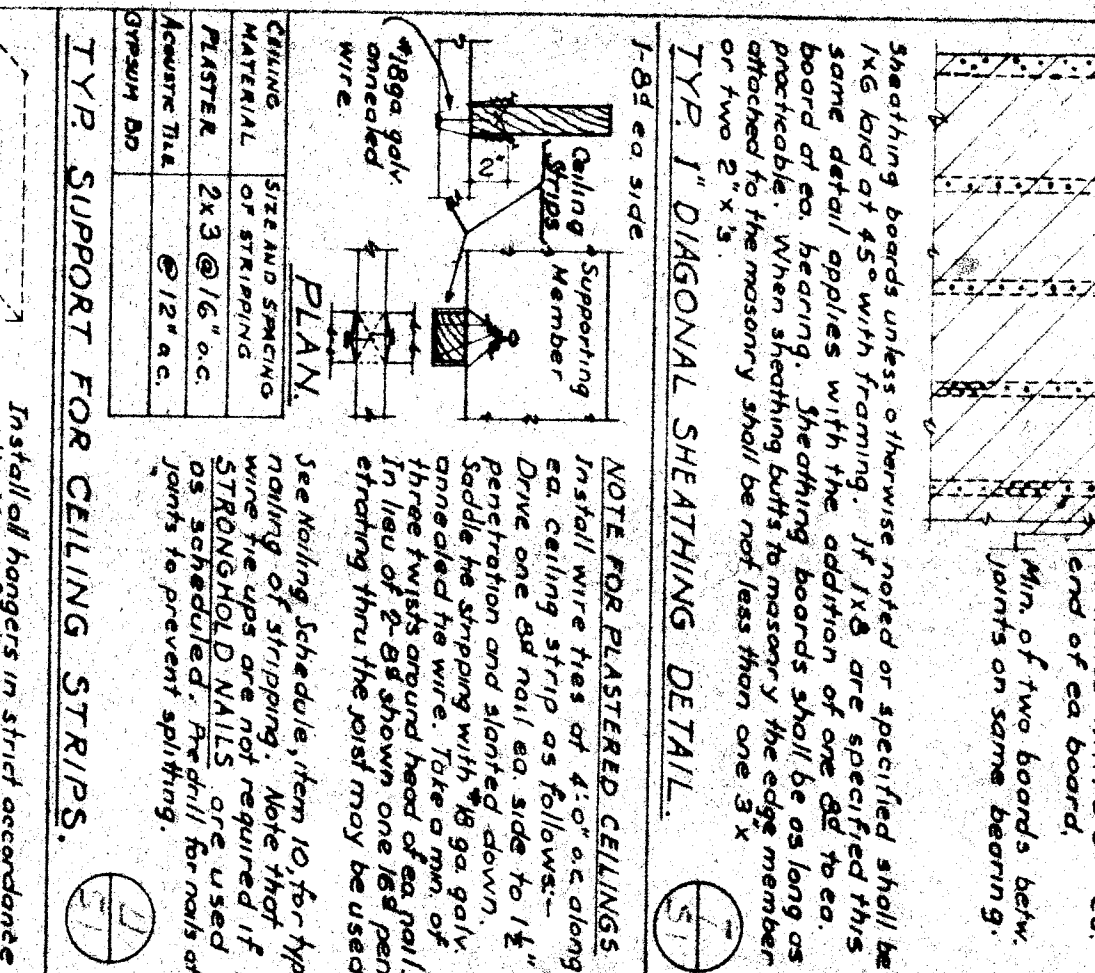 end of ea board.
Min. of two boards betw.
joints on same bearing.
Sheathing boards unless otherwise noted or specified shall be
1x6 laid at 45° with framing. If 1x8 are specified this
same detail applies with the addition of one 8d to ea.
board at ea. bearing. Sheathing boards shall be as long as
practicable. When sheathing butts to masonry the edge member
attached to the masonry shall be not less than one 3"x
or two 2"x's.
TYP. 1" DIAGONAL SHEATHING DETAIL.
T
S1
1-8d ea. side
2"
Ceiling
Strips
Supporting
Member
#18ga galv.
annealed
wire.
PLAN.
CEILING
MATERIAL
SIZE AND SPACING
OF STRIPPING
PLASTER
2x3 @ 16" o.c.
ACOUSTIC TILE
@ 12" o.c.
GYPSUM BD
NOTE FOR PLASTERED CEILINGS
Install wire ties at 4'-0" o.c. along
ea. ceiling strip as follows:-
Drive one 8d nail ea. side to 1½"
penetration and slanted down.
Saddle tie stripping with #18 ga galv.
annealed tie wire. Take a min. of
three twists around head of ea. nail.
In lieu of 2-8d shown one 16d pen
etrating thru the joist may be used
See Nailing Schedule, item 10, for typ
nailing of stripping. Note that
wire tie ups are not required if
STRONGHOLD NAILS are used
as scheduled. Predrill for nails at
joints to prevent splitting.
TYP. SUPPORT FOR CEILING STRIPS.
U
S1
Install all hangers in strict accordance